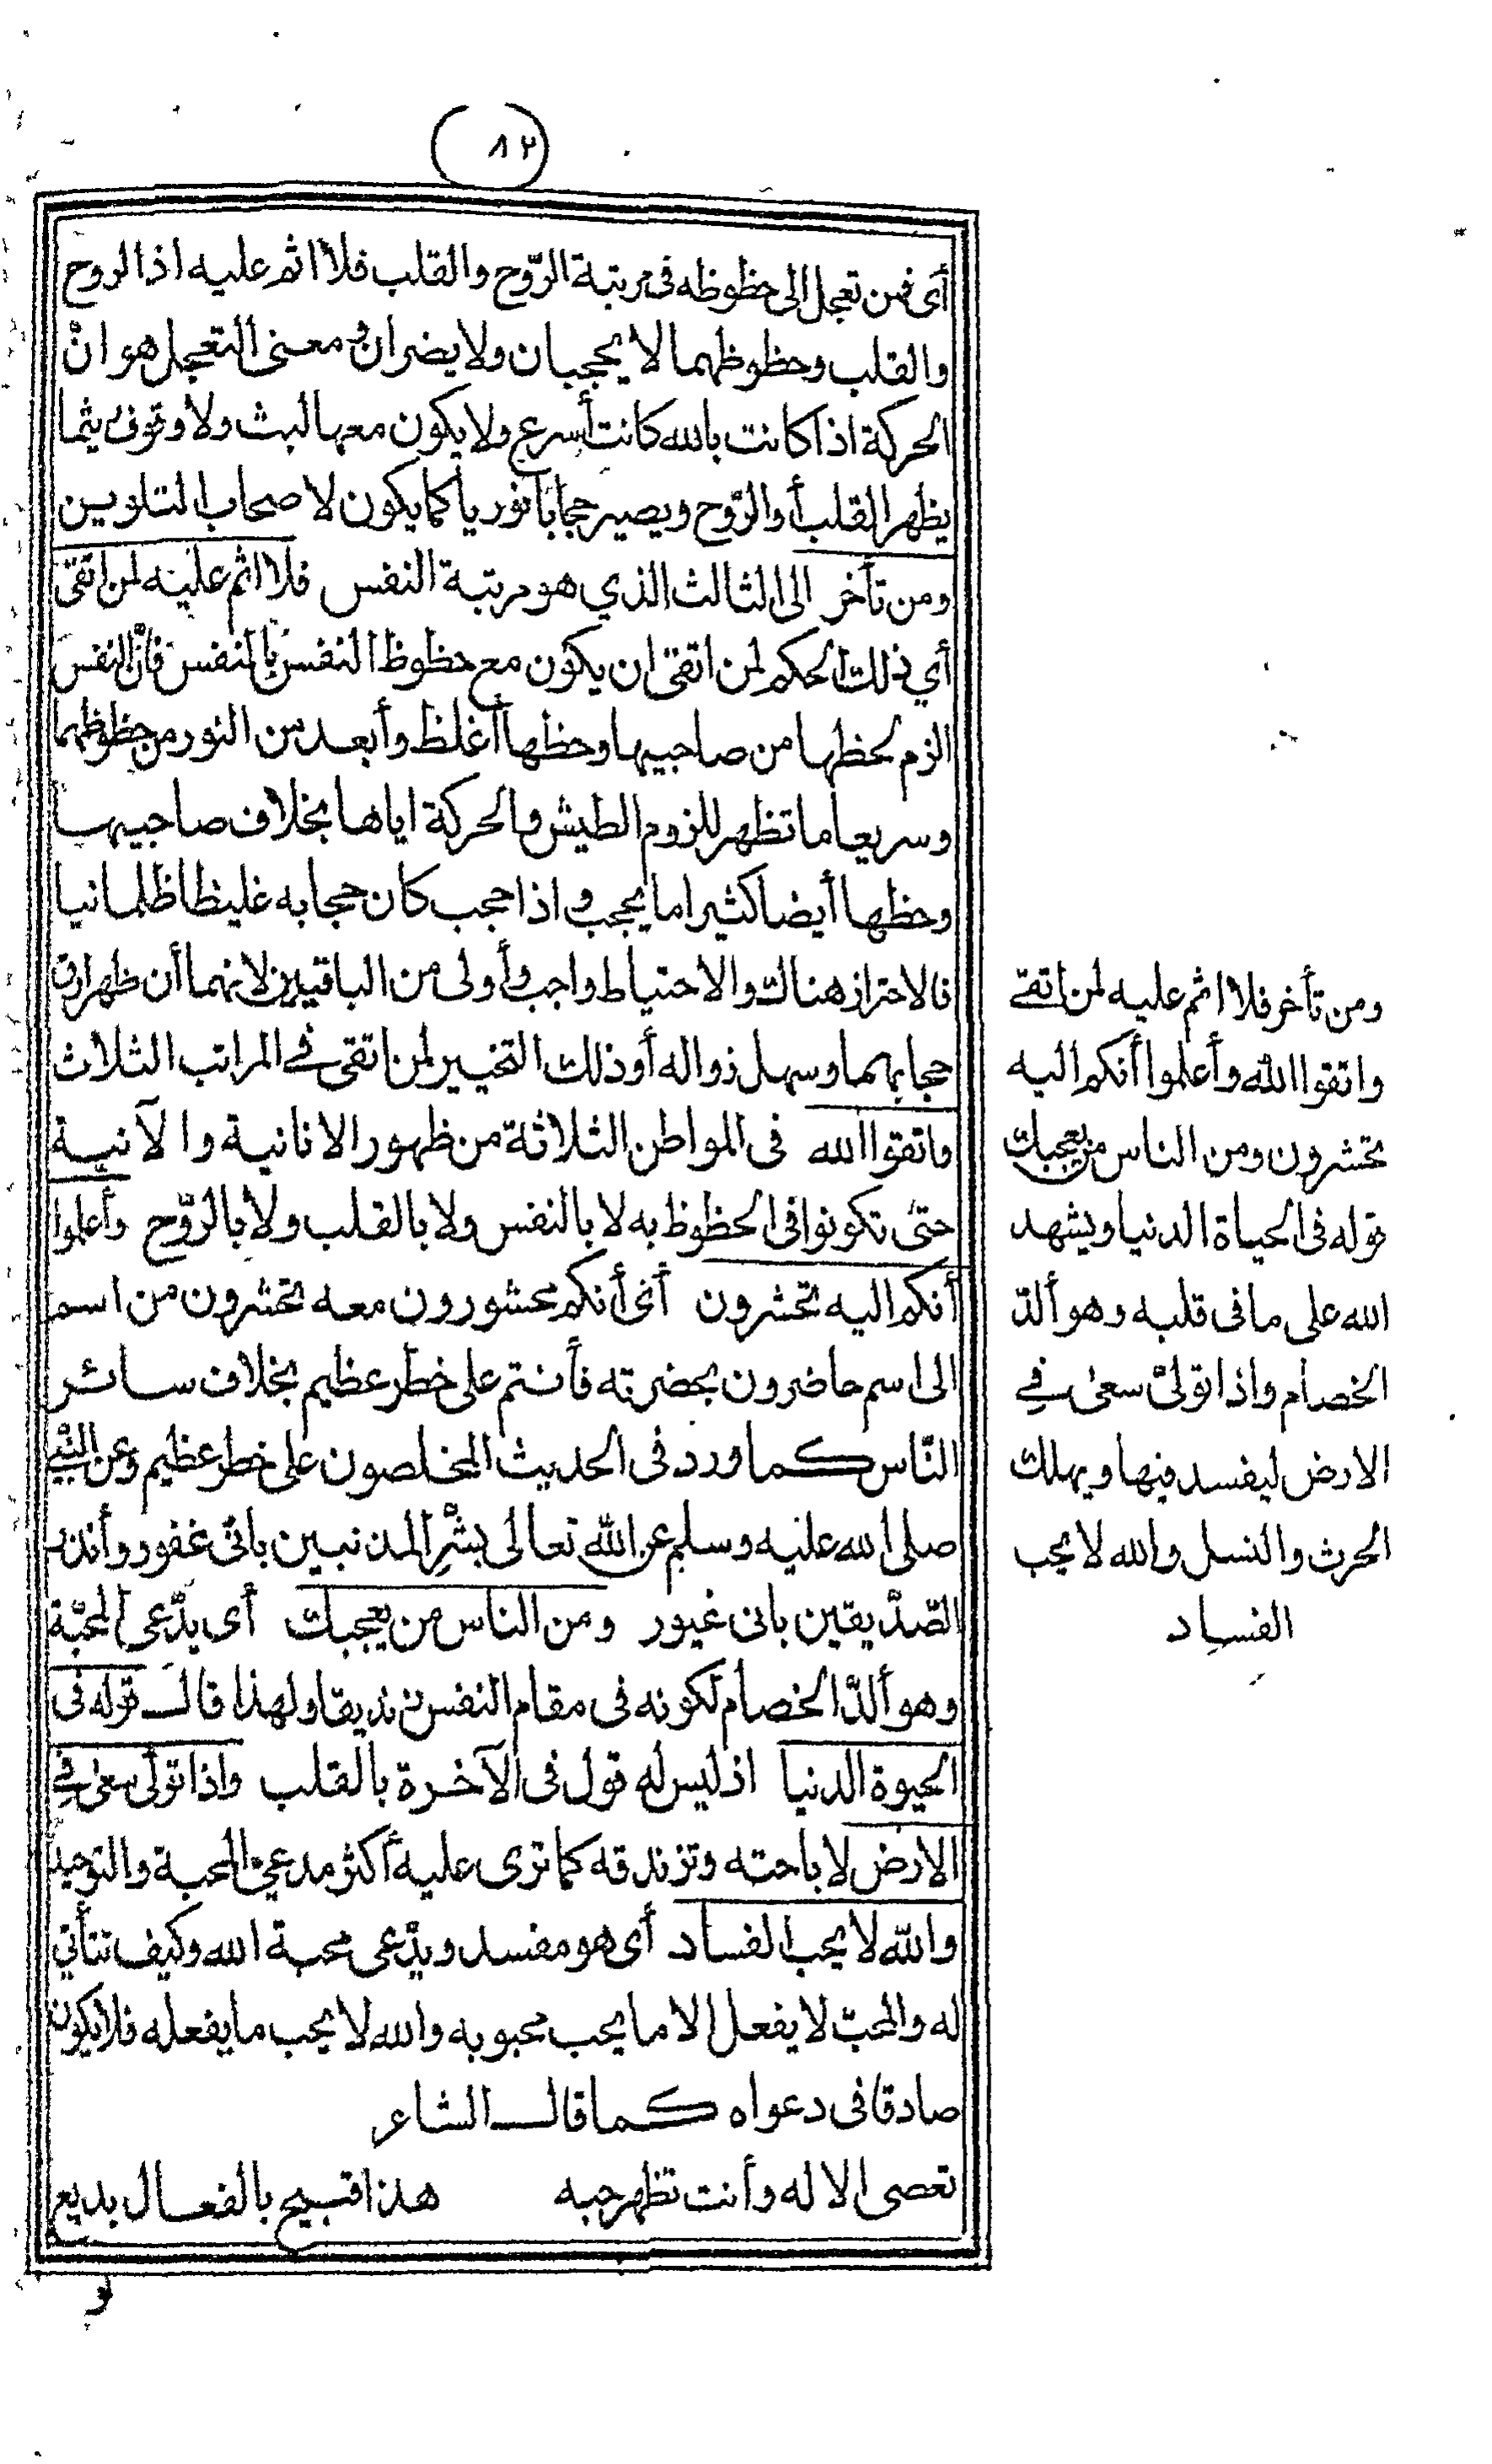 (٨٢)
أى فمن تعجل الى حظوظه فى مرتبة الرّوح والقلب فلا اثم عليه اذ الروح
والقلب وحظوظهما لا يحجبان ولا يضران ومعنى التعجل هو انّ
الحركة اذا كانت بالله كانت أسرع ولا يكون معها لبث ولا وقوف ريثما
يظهر القلب أو الرّوح ويصير حجابا نوريا كما يكون لاصحاب التلوين
ومن تأخر الى الثالث الذي هو مرتبة النفس فلا اثم عليه لمن اتقى
أي ذلك الحكم لمن اتقى ان يكون مع حظوظ النفس بالنفس فانّ النفس
الزم لحظها من صاحبيها وحظها أغلظ وأبعد من النور من حظوظهما
وسريعا ما تظهر للزوم الطيش والحركة اياها بخلاف صاحبيها
وحظها أيضا كثيرا ما يحجب واذا حجب كان حجابه غليظا ظلمانيا
فالاحتراز هناك والاحتياط واجب وأولى من الباقيين لانهما أن ظهرا رق
حجابهما وسهل زواله أو ذلك التخيير لمن اتقى في المراتب الثلاث
واتقوا الله فى المواطن الثلاثة من ظهور الانانية والآنية
حتى تكونوا فى الحظوظ به لا بالنفس ولا بالقلب ولا بالرّوح وأعلموا
أنكم اليه تحشرون أى أنكم محشورون معه تحشرون من اسم
الى اسم حاضرون بحضرته فأنتم على خطر عظيم بخلاف سائر
النّاس كما ورد فى الحديث المخلصون على خطر عظيم وعن النّبيّ
صلى الله عليه وسلم عن الله تعالى بشّر المذنبين بانى غفور وأنذر
الصّدّيقين بانى غيور ومن الناس من يعجبك أى يدّعى المحبّة
وهو ألدّ الخصام لكونه فى مقام النفس زنديقا ولهذا قال قوله فى
الحيوة الدنيا اذ ليس له قول فى الآخرة بالقلب واذا تولى سعى في
الارض لاباحته وتزندقه كما ترى عليه أكثر مدعي المحبة والتوحيد
والله لا يحب الفساد أى هو مفسد ويدّعى محبة الله وكيف تتأتي
له والمحبّ لا يفعل الا ما يحب محبوبه والله لا يحب ما يفعله فلا يكون
صادقا فى دعواه كما قال الشاعر
تعصى الاله وأنت تظهر حبه هذا قبيح بالفعال بديع
لو
ومن تأخر فلا اثم عليه لمن اتقى
واتقوا الله وأعلموا أنكم اليه
تحشرون ومن الناس من يعجبك
قوله فى الحياة الدنيا ويشهد
الله على ما فى قلبه وهو ألدّ
الخصام واذا تولىّ سعى في
الارض ليفسد فيها ويهلك
الحرث والنسل والله لا يحب
الفساد